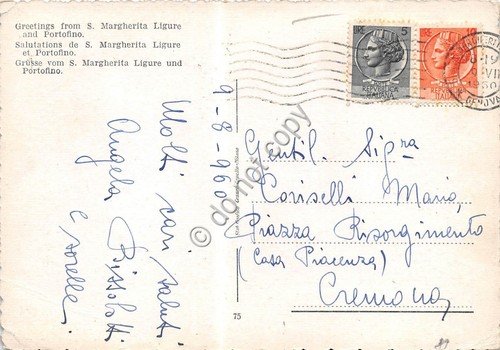 Greetings from S. Margherita Ligure
and Portofino.
Salutations de S. Margherita Ligure
et Portofino.
Grüsse vom S. Margherita Ligure und
Portofino.
Molti cari saluti
Angela Rissolotti
e sorelle
9-8-960
75
LIRE 5
LIRE
REPUBBLICA
ITALIANA
GENOVA
Gentil. Sig.ra
Coriselli Maria,
Piazza Risorgimento
(Casa Piacenza)
Cremona,
do not copy